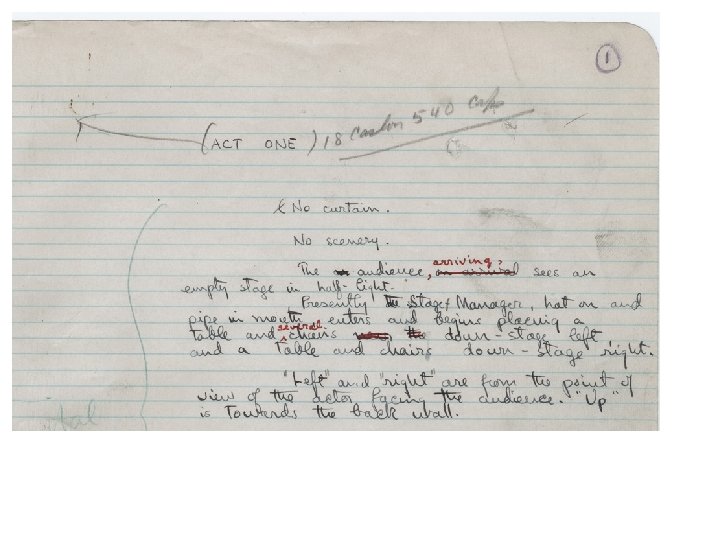 1
(ACT ONE) 18 Caslon 540 caps
No curtain.
No scenery.
arriving,
The audience, on arrival sees an
empty stage in half-light.
Presently the Stage Manager, hat on and
pipe in mouth enters and begins placing a
several
table and chairs down-stage left
and a table and chairs down-stage right.
"Left" and "right" are from the point of
view of the actor facing the audience. "Up"
is towards the back wall.